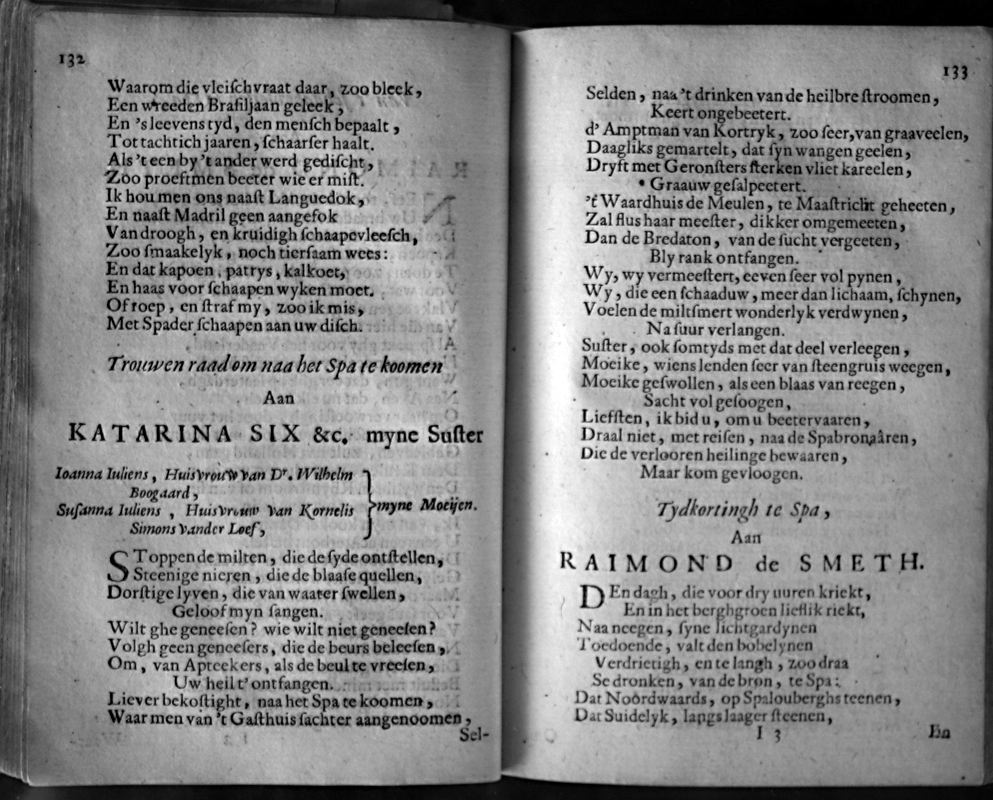 132
Waarom die vleiſchvraat daar, zoo bleek,
Een wreeden Braſiljaan geleek,
En 's leevens tyd, den menſch bepaalt,
Tot tachtich jaaren, ſchaarſer haalt.
Als 't een by 't ander werd gediſcht,
Zoo proeftmen beeter wie er miſt.
Ik hou men ons naaſt Languedok,
En naaſt Madril geen aangefok
Van droogh, en kruidigh ſchaapevleeſch,
Zoo ſmaakelyk, noch tierſaam wees:
En dat kapoen, patrys, kalkoet,
En haas voor ſchaapen wyken moet.
Of roep, en ſtraf my, zoo ik mis,
Met Spader ſchaapen aan uw diſch.
Trouwen raad om naa het Spa te koomen
Aan
KATARINA SIX &c. myne Suſter
Ioanna Iuliens, Huisvrouw van Dr. Wilhelm
Boogaard,
Suſanna Iuliens, Huisvrouw van Kornelis
Simons vander Loef,
myne Moeijen.
SToppende milten, die de ſyde ontſtellen,
Steenige nieren, die de blaaſe quellen,
Dorſtige lyven, die van waater ſwellen,
Geloof myn ſangen.
Wilt ghe geneeſen? wie wilt niet geneeſen?
Volgh geen geneeſers, die de beurs beleeſen,
Om, van Apteekers, als de beul te vreeſen,
Uw heil t' ontfangen.
Liever bekoſtight, naa het Spa te koomen,
Waar men van 't Gaſthuis ſachter aangenoomen,
Sel-
133
Selden, naa 't drinken van de heilbre ſtroomen,
Keert ongebeetert.
d' Amptman van Kortryk, zoo ſeer, van graaveelen,
Daagliks gemartelt, dat ſyn wangen geelen,
Dryft met Geronſters ſterken vliet kareelen,
Graauw geſalpeetert.
't Waardhuis de Meulen, te Maaſtricht geheeten,
Zal flus haar meeſter, dikker omgemeeten,
Dan de Bredaton, van de ſucht vergeeten,
Bly rank ontfangen.
Wy, wy vermeeſtert, eeven ſeer vol pynen,
Wy, die een ſchaaduw, meer dan lichaam, ſchynen,
Voelen de miltſmert wonderlyk verdwynen,
Na ſuur verlangen.
Suſter, ook ſomtyds met dat deel verleegen,
Moeike, wiens lenden ſeer van ſteengruis weegen,
Moeike geſwollen, als een blaas van reegen,
Sacht vol geſoogen,
Liefſten, ik bid u, om u beetervaaren,
Draal niet, met reiſen, naa de Spabronaâren,
Die de verlooren heilinge bewaaren,
Maar kom gevloogen.
Tydkortingh te Spa,
Aan
RAIMOND de SMETH.
DEn dagh, die voor dry uuren kriekt,
En in het berghgroen lieflik riekt,
Naa neegen, ſyne lichtgardynen
Toedoende, valt den bobelynen
Verdrietigh, en te langh, zoo draa
Se dronken, van de bron, te Spa:
Dat Noordwaards, op Spalouberghs teenen,
Dat Suidelyk, langs laager ſteenen,
I 3
En